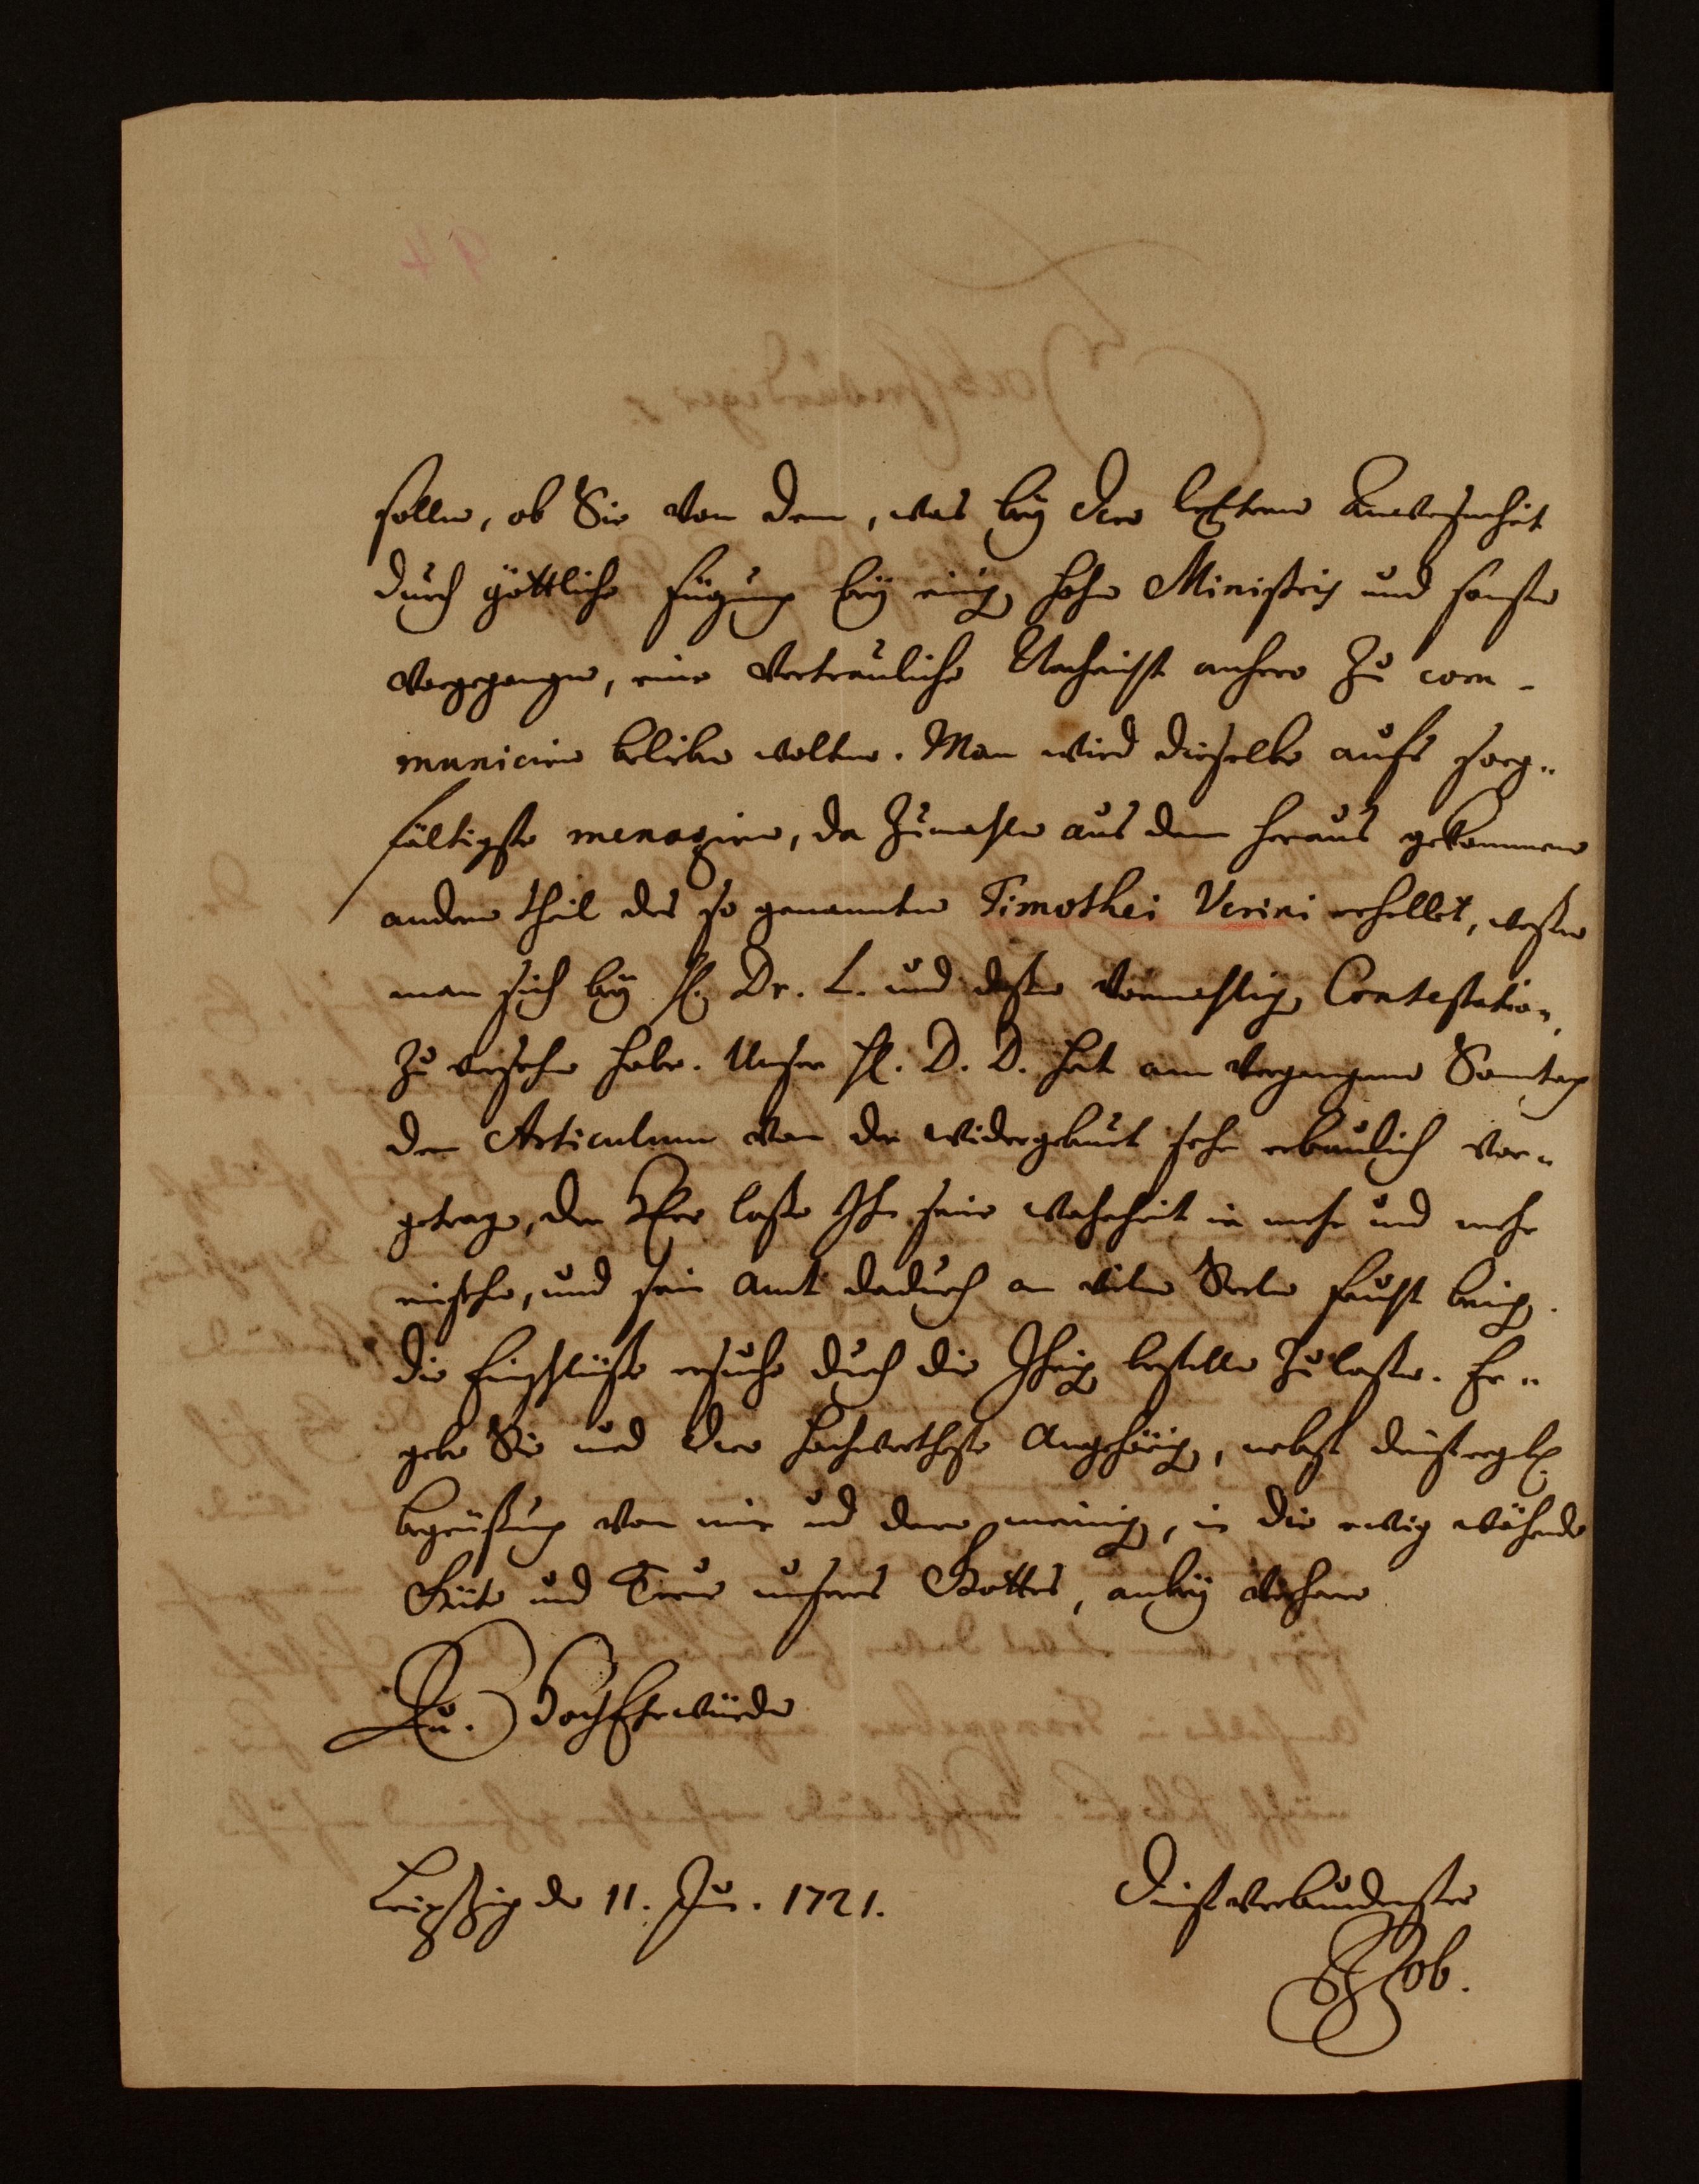 sollen, ob Sie von dem, was bey dero letztern Anwesenheit
durch göttliche Fügung bey einig. hohen Ministris und sonsten
vorgegangen, eine vertrauliche Nachricht anhero zu com-
municiren belieben wolten. Man wird dieselbe aufs sorg-
fältigste menagiren, da zumahlen aus dem heraus gekommenen
andern theil des so genannten Timothei Verini erhellet, weßen
man sich bey H. Dr. L. und deßen vormahlig. Contestation.
zu versehen habe. Unser H. D. D. hat am vergangenen Sontag
den Articulum von der widergeburt sehr erbaulich vor-
getragen, der Herr laße Ihn seine wahrheit in mehr und mehr
einsehen, und sein Amt dadurch an vielen Seelen frucht bring.
Die Einschlüße ersuche durch die Ihrig. bestellen zu laßen. Er-
gebe Sie und dero hochwertheste Angehörig., nebst dienstergeb.
begrüßung von mir und denen meinig., in die ewig währende
Güte und Treue unseres Gottes, anbey verharre
Eu. HochEhrwürden
Leipzig den 11. Jun. 1721.
Dienstverbundenster